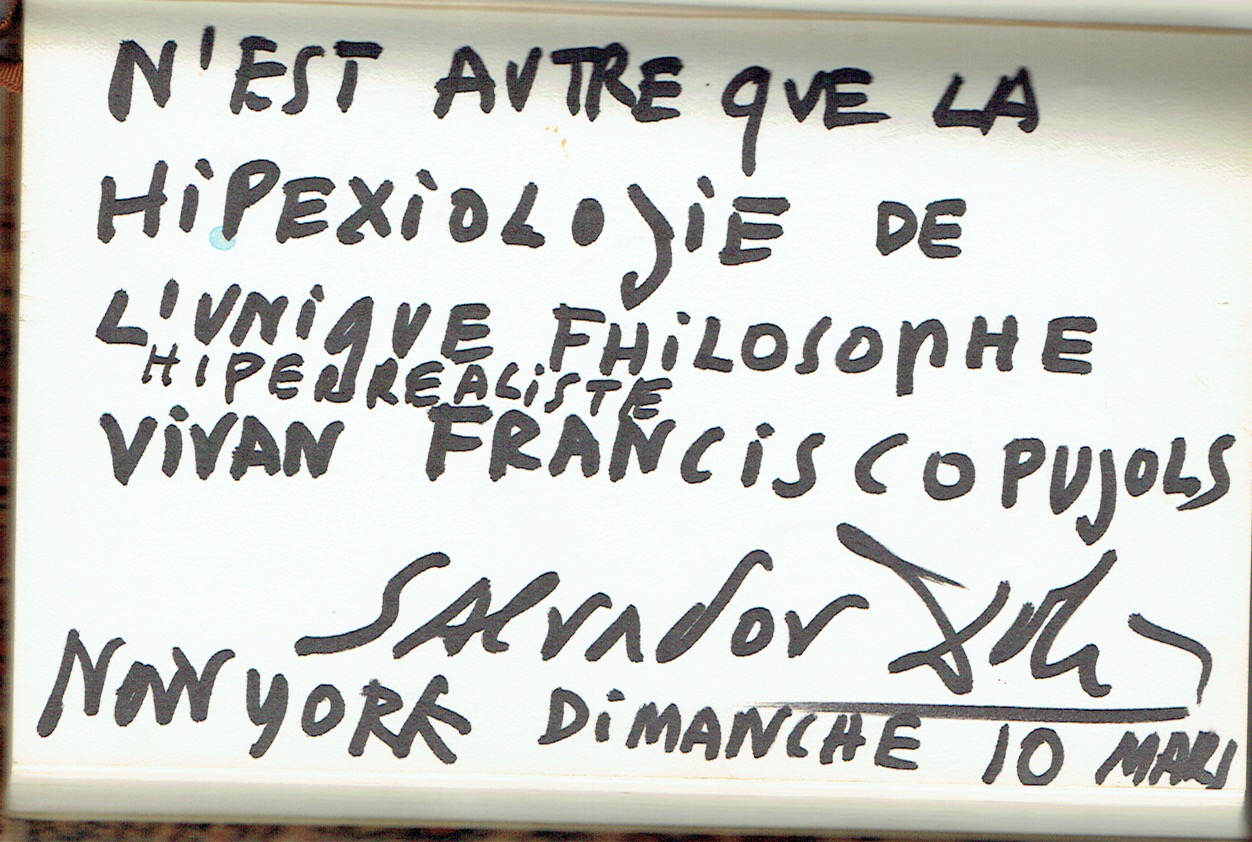 N'EST AUTRE QUE LA
HiPEXiOLOJiE DE
L'UNiQUE FHiLOSOPHE
HIPERREALiSTE
ViVAN FRANCiSCO PUJOLS
SALVADOR Dali
NOW YORK DiMANCHE 10 MARS